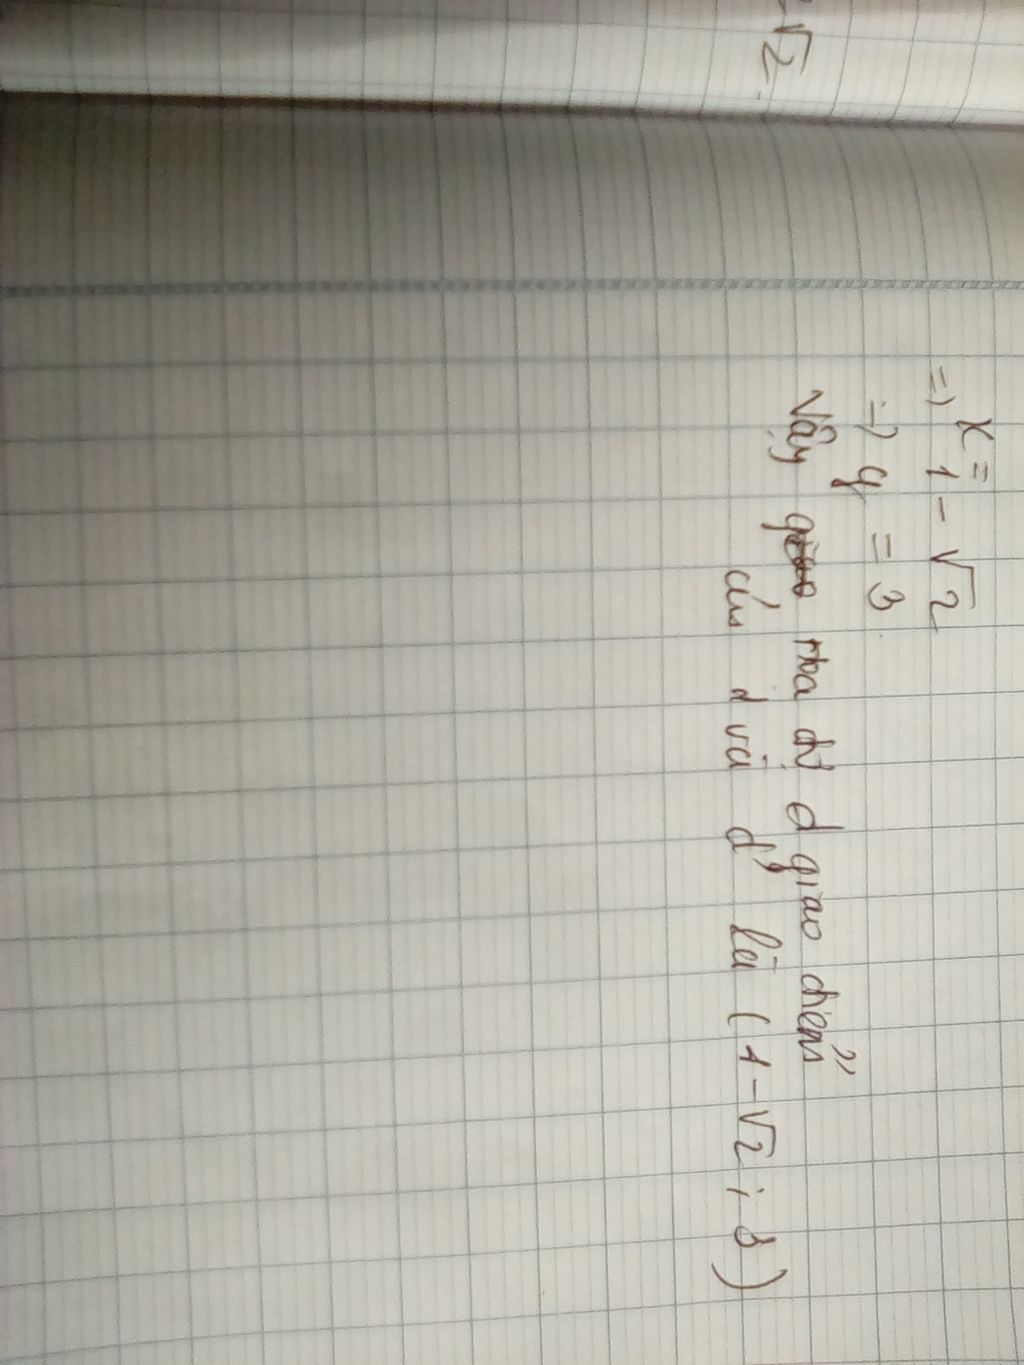 √2.
=) x = 1 - √2
=) y = 3
Vậy toạ độ giao điểm
của d và d' là (1-√2 ; 3)